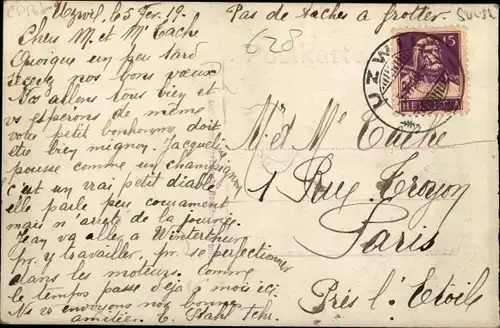 Uzwil le 5 Fev. 19.
Pas de taches à frotter.
628
Postkarte
15
HELVETIA
UZWIL
Chers M. et Mme Tache
Quoique un peu tard
recevez nos bons voeux
Ns allons tous bien et
vs esperons de même
votre petit bonhomme doit
être bien mignon. Jacqueline
pousse comme un champignon
c'est un vrai petit diable
elle parle peu couramment
mais n'arrête de la journée.
Jean va aller à Winterthur
pr. y travailler pr. se perfectionner
dans les moteurs. Comme
le temps passe déjà 2 mois ici.
Ns vs envoyons nos bonnes
amitiés. E. Stahl fchr.
M. et Me Tache
1 Rue Troyon
Paris
Près l'Etoile